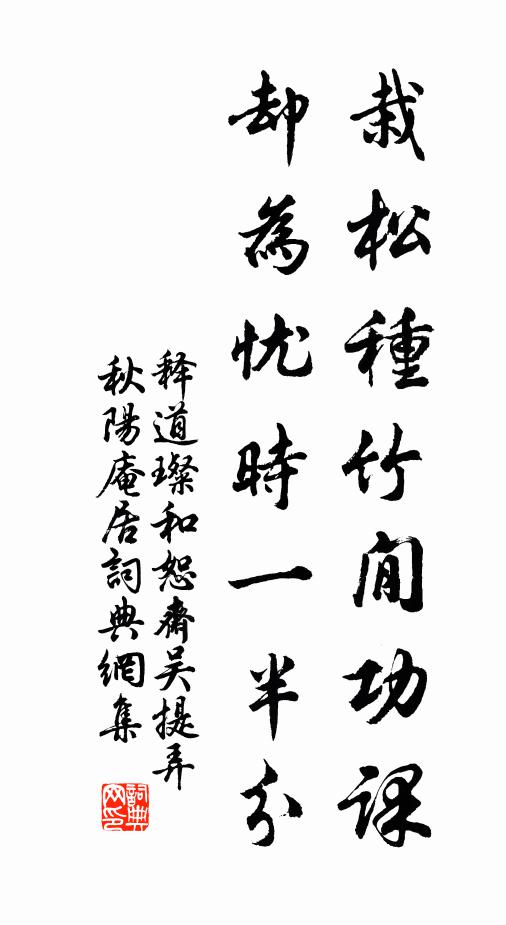 栽松種竹閒功課
却為忧時一半分
释道璨和恕齋吴提弄
秋陽庵居詞典網集
詞典网印